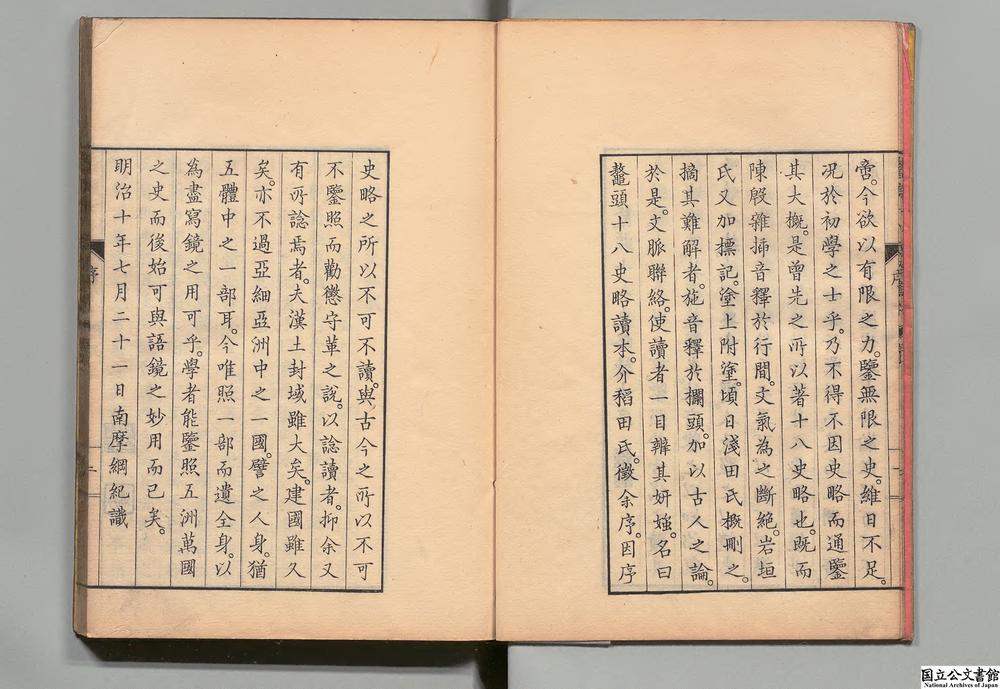 啻。今欲以有限之力。鑒無限之史。維日不足。
况於初學之士乎。乃不得不因史略而通鑒
其大概。是曾先之所以著十八史略也。既而
陳殷雜挿音釋於行間。文氣為之斷絶。岩垣
氏又加標記。塗上附塗。頃日淺田氏概刪之。
摘其難解者。施音釋於欄頭。加以古人之論。
於是。文脈聯絡。使讀者一目辨其妍媸。名曰
鼇頭十八史略讀本。介稻田氏。徵余序。因序
史略之所以不可不讀。與古今之所以不可
不鑒照而勸懲守革之說。以諗讀者。抑余又
有所諗焉者。夫漢土封域雖大矣。建國雖久
矣。亦不過亞細亞洲中之一國。譬之人身。猶
五體中之一部耳。今唯照一部而遺全身。以
為盡寫鏡之用可乎。學者能鑒照五洲萬國
之史而後始可與語鏡之妙用而已矣。
明治十年七月二十一日南摩綱紀識
序
二
国立公文書館
National Archives of Japan